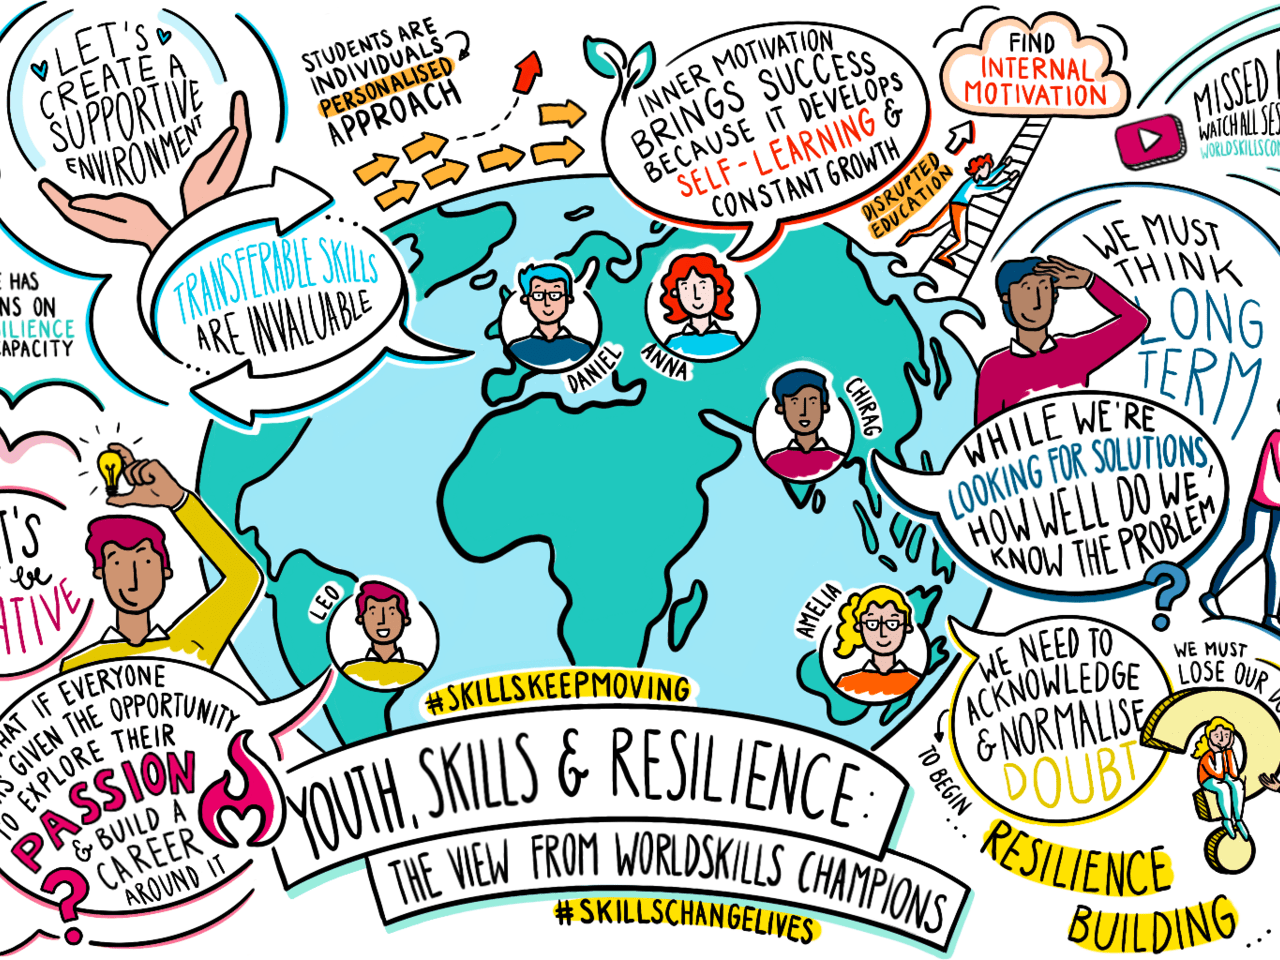 LET'S
CREATE A
SUPPORTIVE
ENVIRONMENT
STUDENTS ARE
INDIVIDUALS
PERSONALISED
APPROACH
INNER MOTIVATION
BRINGS SUCCESS
BECAUSE IT DEVELOPS
SELF-LEARNING &
CONSTANT GROWTH
FIND
INTERNAL
MOTIVATION
DISRUPTED
EDUCATION
MISSED
WATCH ALL
WORLDSKILLS
TRANSFERABLE SKILLS
ARE INVALUABLE
HAS
ON
CAPACITY
DANIEL
ANNA
CHIRAG
WE MUST
THINK
LONG
TERM
WHILE WE'RE
LOOKING FOR SOLUTIONS,
HOW WELL DO WE
KNOW THE PROBLEM
?
be
LEO
AMELIA
IF EVERYONE
GIVEN THE OPPORTUNITY
TO EXPLORE THEIR
PASSION
& BUILD A
CAREER
AROUND IT
?
WE NEED TO
ACKNOWLEDGE
& NORMALISE
DOUBT
WE MUST
LOSE OUR
TO BEGIN...
RESILIENCE
BUILDING...
#SKILLSKEEPMOVING
YOUTH, SKILLS & RESILIENCE:
THE VIEW FROM WORLDSKILLS CHAMPIONS
#SKILLSCHANGELIVES